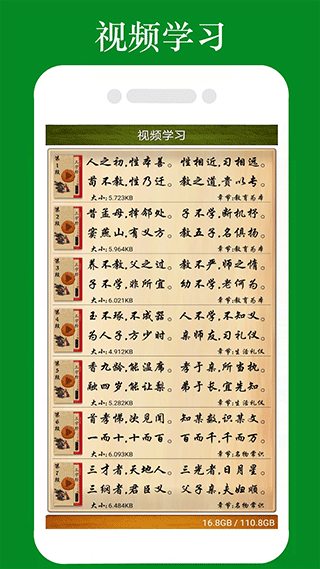 视频学习
视频学习
第1段
人之初，性本善。 性相近，习相远。
苟不教，性乃迁。 教之道，贵以专。
大小：5.723KB 章节：教育为本
第2段
昔孟母，择邻处。 子不学，断机杼。
窦燕山，有义方。 教五子，名俱扬。
大小：5.964KB 章节：教育为本
第3段
养不教，父之过。 教不严，师之惰。
子不学，非所宜。 幼不学，老何为。
大小：6.021KB 章节：教育为本
第4段
玉不琢，不成器。 人不学，不知义。
为人子，方少时。 亲师友，习礼仪。
大小：4.912KB 章节：生活礼仪
第5段
香九龄，能温席。 孝于亲，所当执。
融四岁，能让梨。 弟于长，宜先知。
大小：5.282KB 章节：生活礼仪
第6段
首孝悌，次见闻。 知某数，识某文。
一而十，十而百。 百而千，千而万。
大小：6.093KB 章节：名物常识
第7段
三才者，天地人。 三光者，日月星。
三纲者，君臣义。 父子亲，夫妇顺。
大小：6.484KB 章节：名物常识
16.8GB / 110.8GB